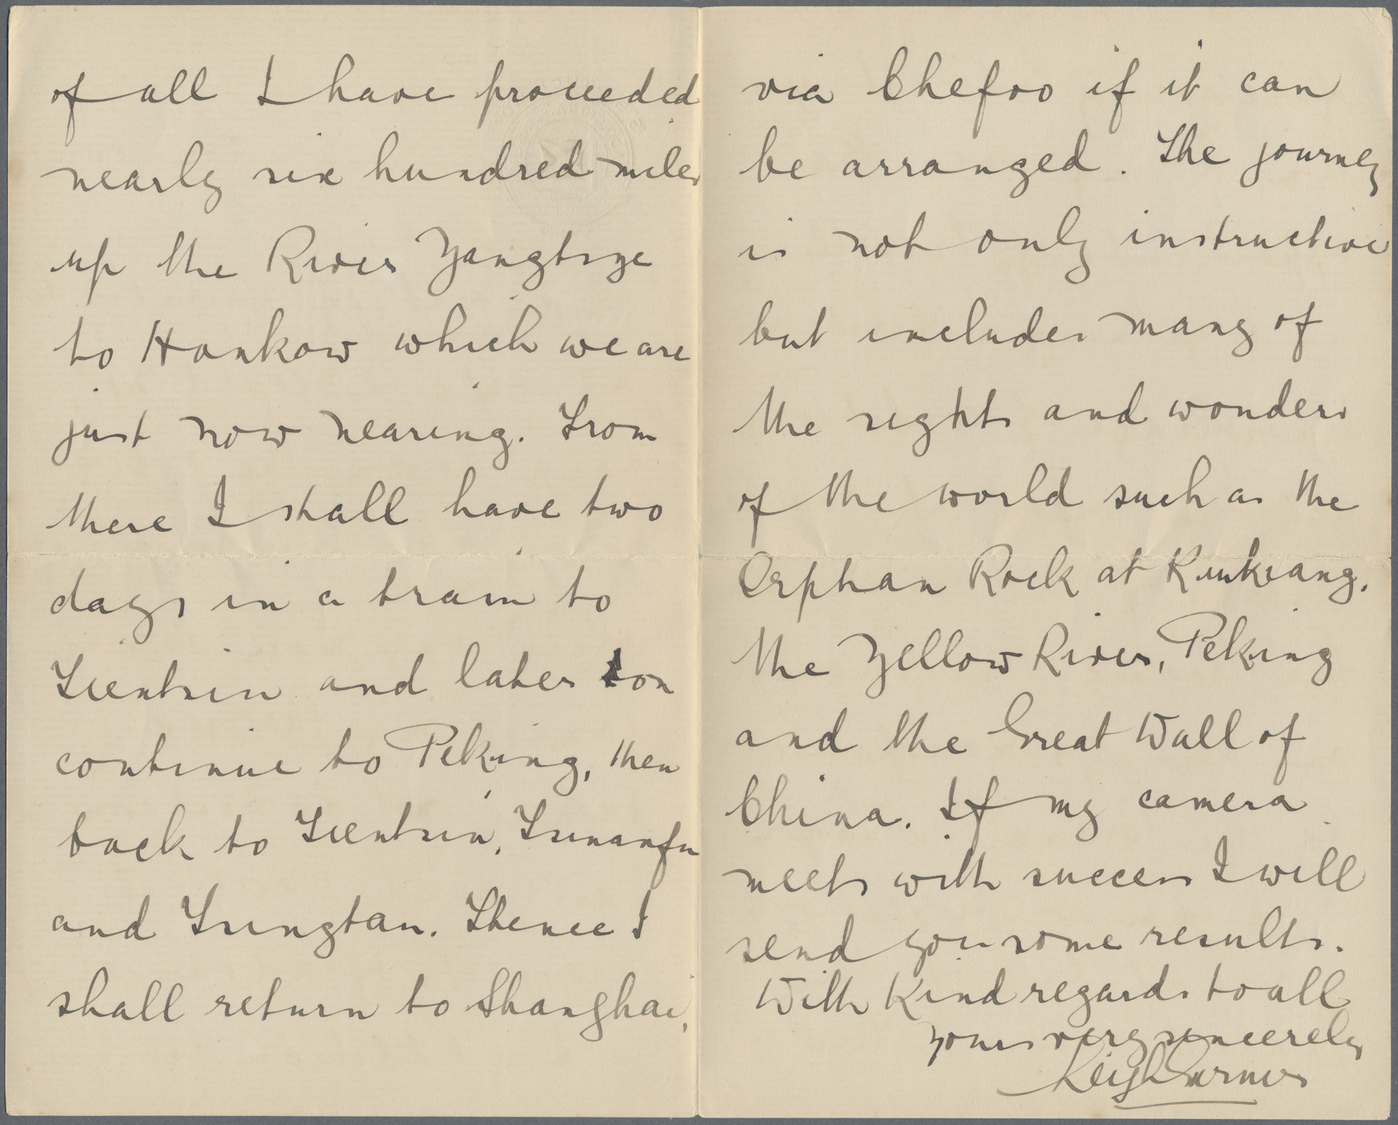 of all I have proceeded
nearly six hundred miles
up the River Yangtsze
to Hankow which we are
just now nearing. From
there I shall have two
days in a train to
Tientsin and later on
continue to Peking, then
back to Tientsin, Tsinanfu
and Tsingtau. Thence I
shall return to Shanghai,
via Chefoo if it can
be arranged. The journey
is not only instructive
but includes many of
the sights and wonders
of the world such as the
Orphan Rock at Kiukiang,
the Yellow River, Peking
and the Great Wall of
China. If my camera
meets with success I will
send you some results.
With kind regards to all
yours very sincerely